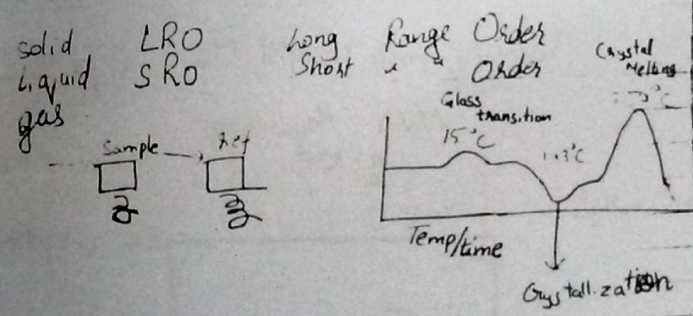 solid LRO Long Range Order
Liquid SRO Short " " Order
gas
Crystal
Melting
Glass
transition
Sample
Ref
15°C
°C
Temp/time
Crystallization